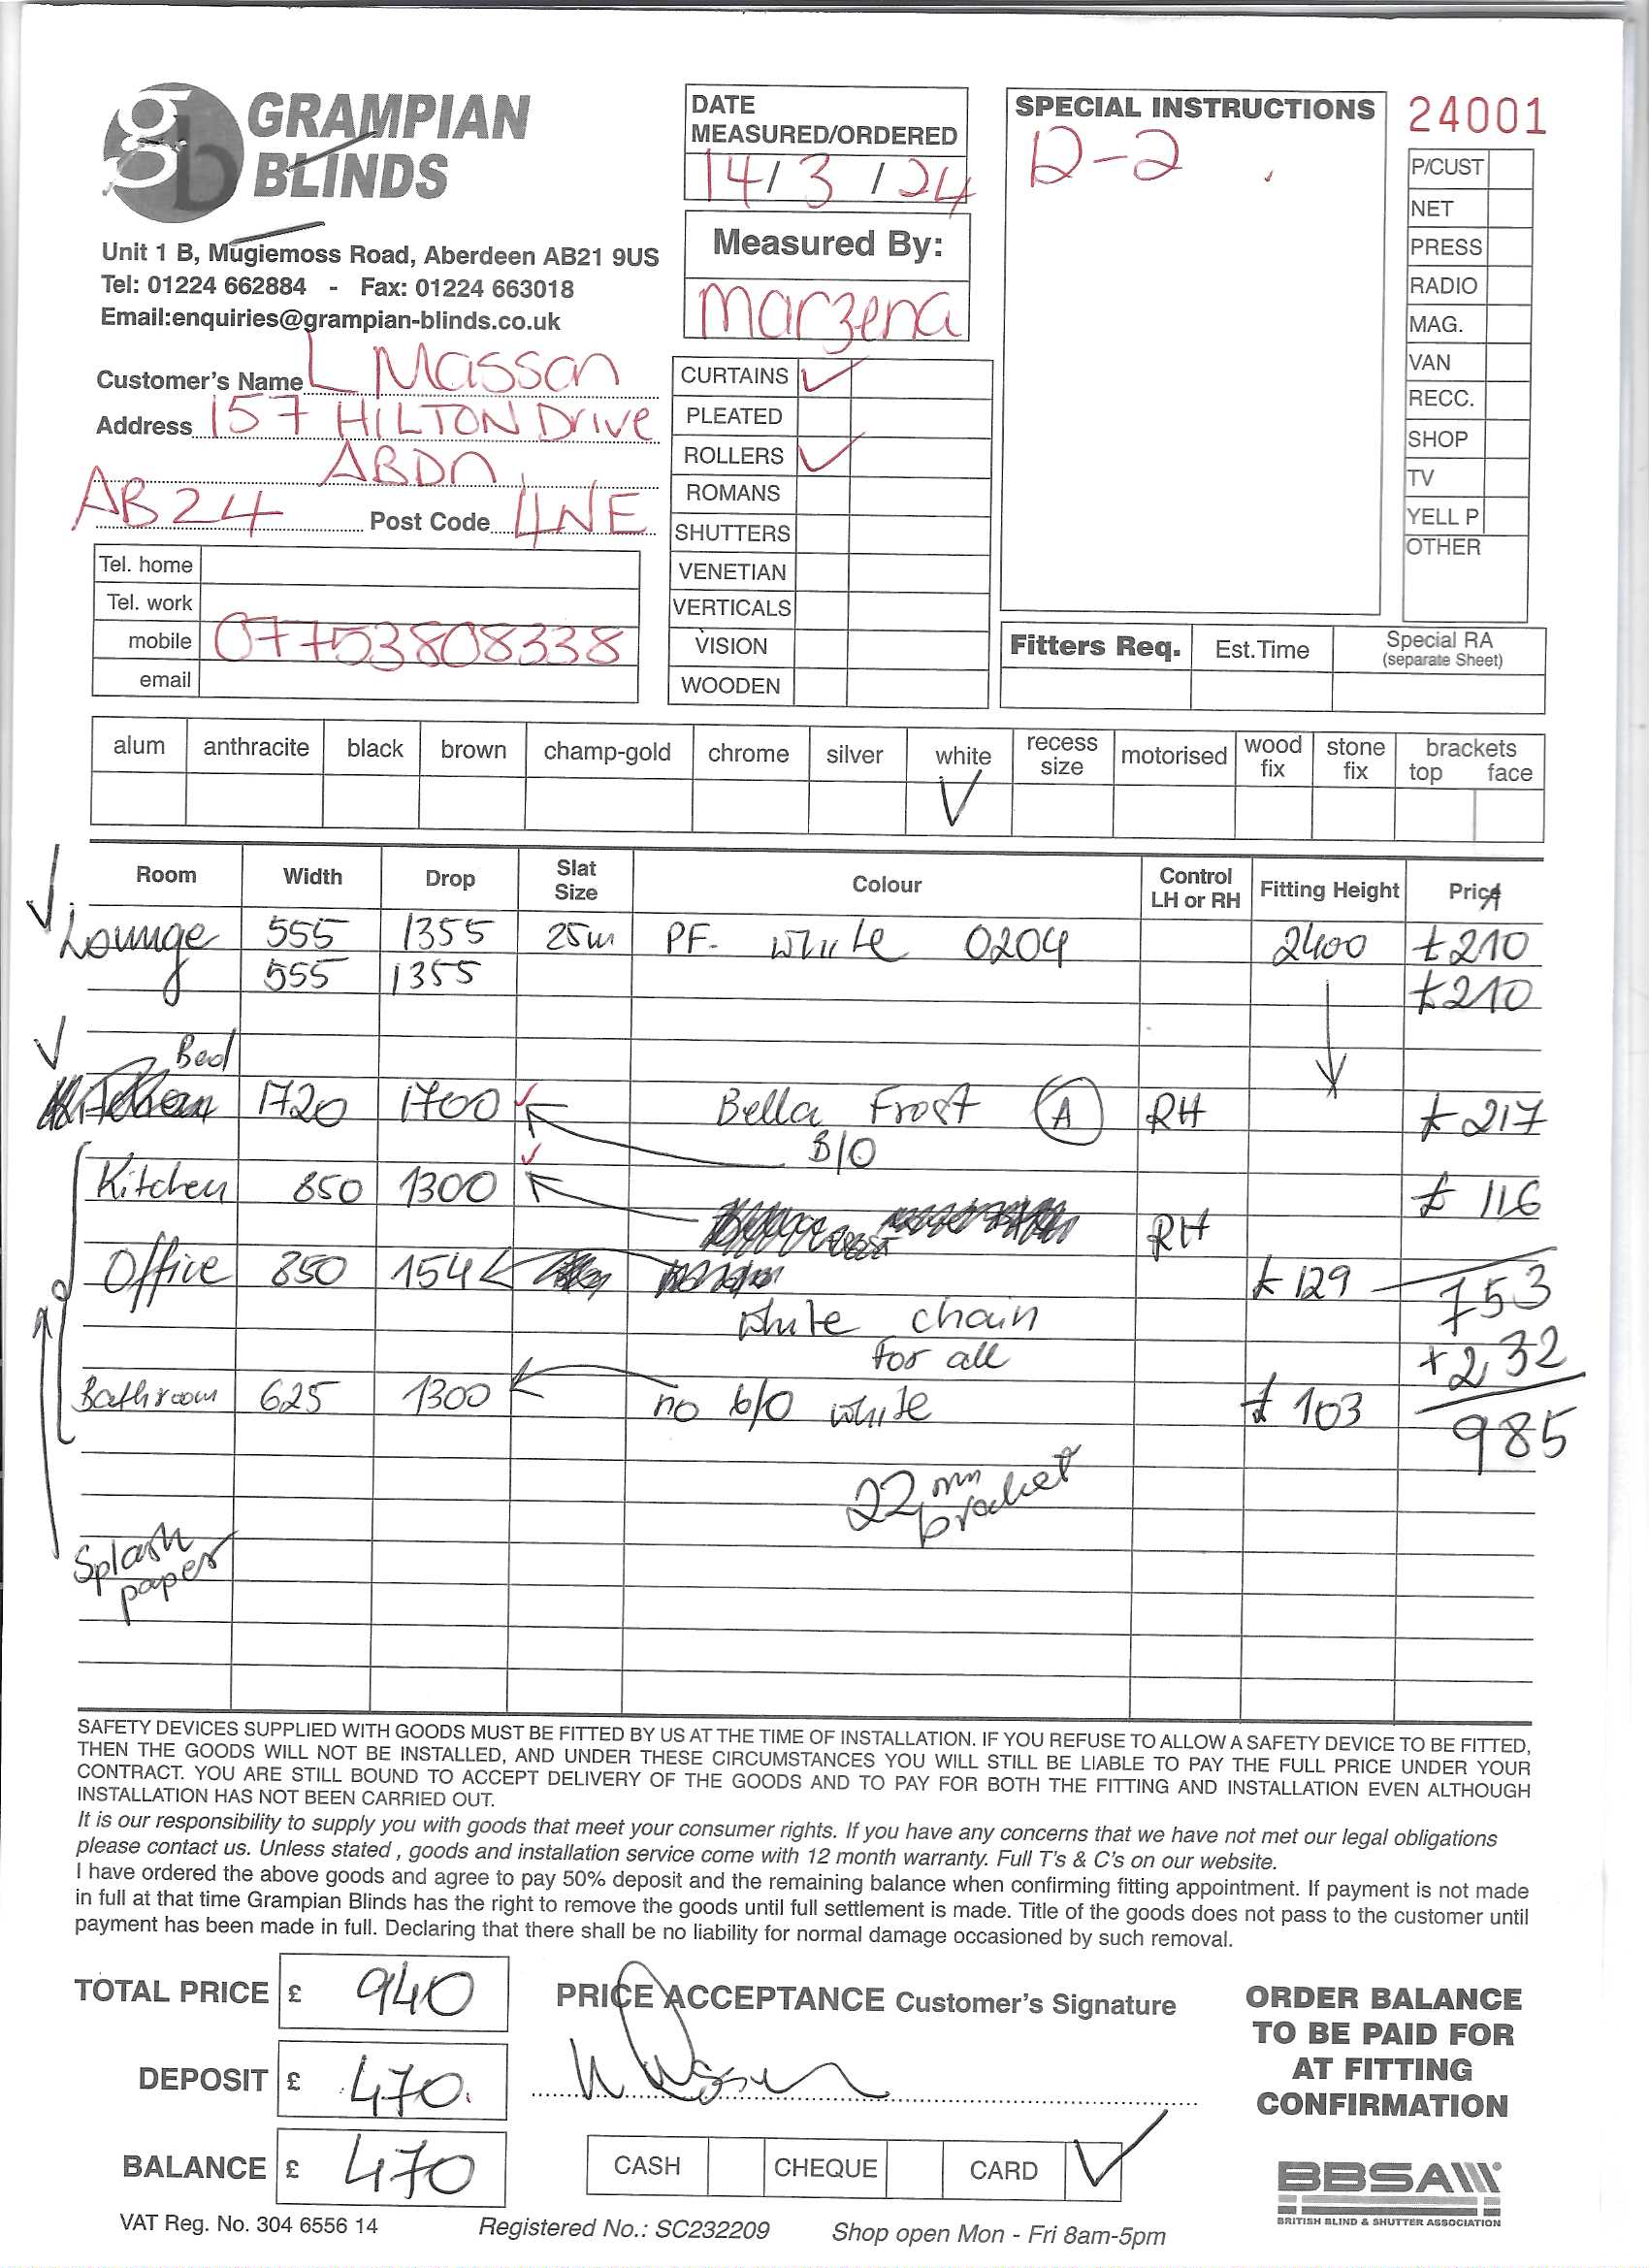 GRAMPIAN
BLINDS
Unit 1 B, Mugiemoss Road, Aberdeen AB21 9US
Tel: 01224 662884 - Fax: 01224 663018
Email:enquiries@grampian-blinds.co.uk
Customer's Name L Masson
Address 157 HILTON Drive
ABDN
AB24 Post Code 4NE
Tel. home
Tel. work
mobile 07753808338
email
DATE
MEASURED/ORDERED
14/3/24
Measured By:
Marzena
CURTAINS ✓
PLEATED
ROLLERS ✓
ROMANS
SHUTTERS
VENETIAN
VERTICALS
VISION
WOODEN
SPECIAL INSTRUCTIONS
D-2
24001
P/CUST
NET
PRESS
RADIO
MAG.
VAN
RECC.
SHOP
TV
YELL P
OTHER
Fitters Req. Est.Time Special RA
(separate Sheet)
alum anthracite black brown champ-gold chrome silver white recess size motorised wood fix stone fix brackets top face
✓
Room Width Drop Slat Size Colour Control LH or RH Fitting Height Price
Lounge 555 1355 25m PF. white 0204 2400 £210
555 1355 £210
Bed
1720 1700 Bella Frost A RH £217
B/O
Kitchen 850 1300 £ 116
RH
Office 850 154 £129 753
white chain
for all +232
Bathroom 625 1300 no b/o white £ 103
985
22mm
bracket
Splash
paper
SAFETY DEVICES SUPPLIED WITH GOODS MUST BE FITTED BY US AT THE TIME OF INSTALLATION. IF YOU REFUSE TO ALLOW A SAFETY DEVICE TO BE FITTED,
THEN THE GOODS WILL NOT BE INSTALLED, AND UNDER THESE CIRCUMSTANCES YOU WILL STILL BE LIABLE TO PAY THE FULL PRICE UNDER YOUR
CONTRACT. YOU ARE STILL BOUND TO ACCEPT DELIVERY OF THE GOODS AND TO PAY FOR BOTH THE FITTING AND INSTALLATION EVEN ALTHOUGH
INSTALLATION HAS NOT BEEN CARRIED OUT.
It is our responsibility to supply you with goods that meet your consumer rights. If you have any concerns that we have not met our legal obligations
please contact us. Unless stated , goods and installation service come with 12 month warranty. Full T's & C's on our website.
I have ordered the above goods and agree to pay 50% deposit and the remaining balance when confirming fitting appointment. If payment is not made
in full at that time Grampian Blinds has the right to remove the goods until full settlement is made. Title of the goods does not pass to the customer until
payment has been made in full. Declaring that there shall be no liability for normal damage occasioned by such removal.
TOTAL PRICE £ 940
DEPOSIT £ 470.
BALANCE £ 470
PRICE ACCEPTANCE Customer's Signature
CASH CHEQUE CARD ✓
ORDER BALANCE
TO BE PAID FOR
AT FITTING
CONFIRMATION
BBSA
BRITISH BLIND & SHUTTER ASSOCIATION
VAT Reg. No. 304 6556 14 Registered No.: SC232209 Shop open Mon - Fri 8am-5pm